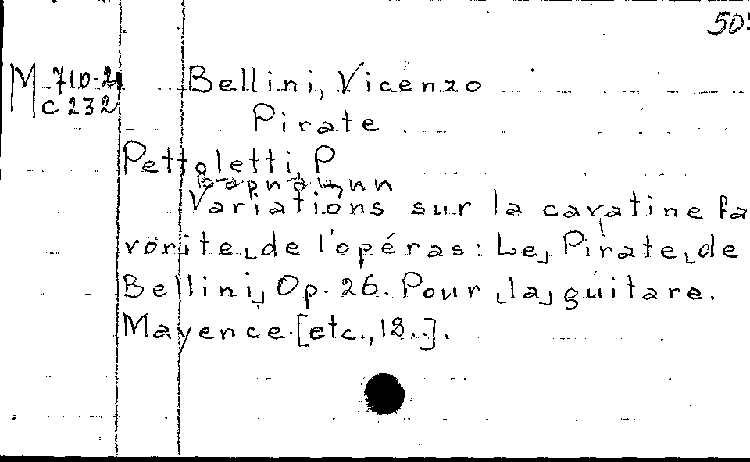 505
M 710-21 Bellini, Vicenzo
C 232
Pirate
Pettoletti, P
Variations sur la cavatine fa
vorite de l'opéras: Le Pirate de
Bellini, Op. 26. Pour la guitare.
Mayence.[etc., 18..].